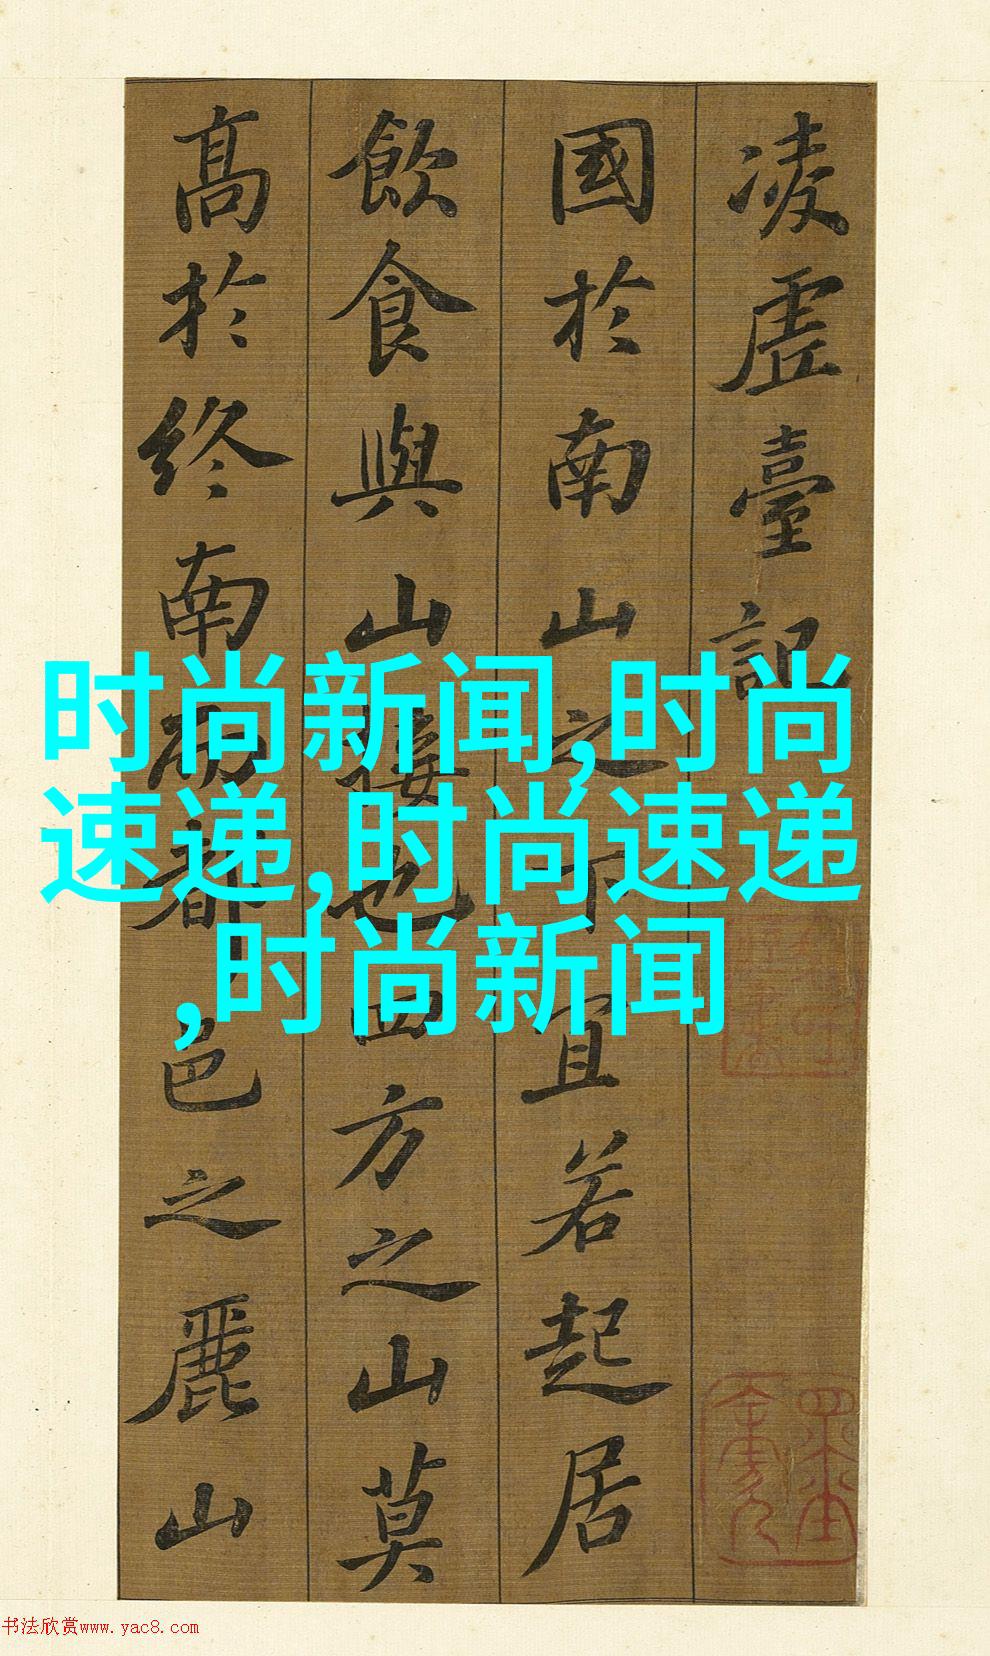 凌虛臺記
國於南山之下宜若起居
飲食與山接也四方之山莫
高於終南而都邑之麗山
时尚新闻,时尚
速递,时尚速递
,时尚新闻
书法欣赏www.yac8.com